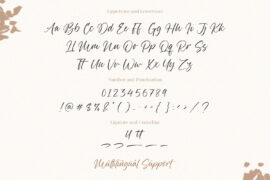 Uppercase and Lowercase
Aa Bb Cc Dd Ee Ff Gg Hh Ii Jj Kk
Ll Mm Nn Oo Pp Qq Rr Ss
Tt Uu Vv Ww Xx Yy Zz
Number and Punctuation
0123456789
Ligature and
Multilingual Support